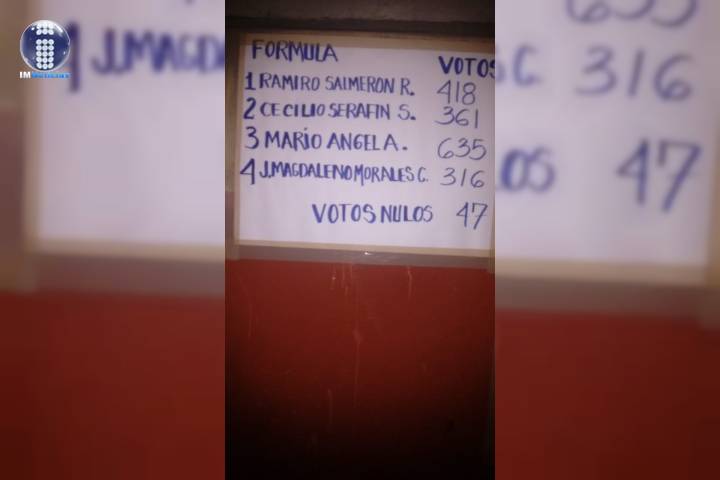 IMNoticias
FORMULA VOTOS
1 RAMIRO SALMERON R. 418
2 CECILIO SERAFIN S. 361
3 MARIO ANGEL A. 635
4 J.MAGDALENO MORALES C. 316
VOTOS NULOS 47